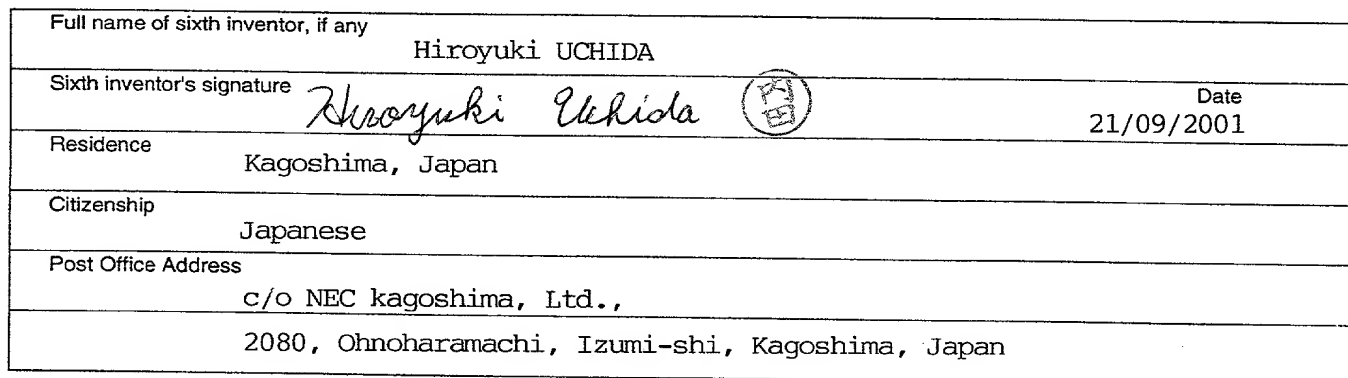 Full name of sixth inventor, if any
Hiroyuki UCHIDA
Sixth inventor's signature
Hiroyuki Uchida 内田
Date
21/09/2001
Residence
Kagoshima, Japan
Citizenship
Japanese
Post Office Address
c/o NEC kagoshima, Ltd.,
2080, Ohnoharamachi, Izumi-shi, Kagoshima, Japan